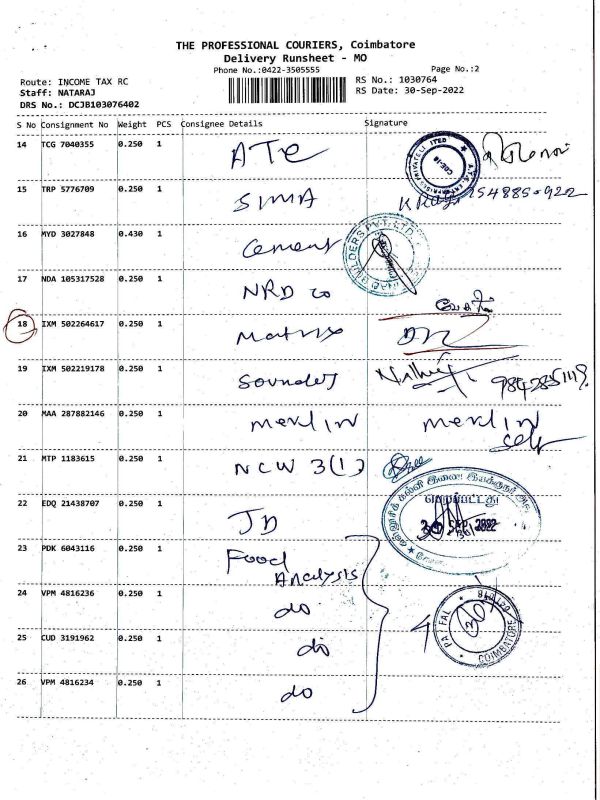 THE PROFESSIONAL COURIERS, Coimbatore
Delivery Runsheet - MO
Phone No.:0422-3505555 Page No.:2
Route: INCOME TAX RC RS No.: 1030764
Staff: NATARAJ RS Date: 30-Sep-2022
DRS No.: DCJB103076402
S No Consignment No Weight PCS Consignee Details Signature
14 TCG 7040355 0.250 1 ATe
15 TRP 5776709 0.250 1 SIMA
16 MYD 3027848 0.430 1 Cement
BUILDERS PVT. LTD.
17 NDA 105317528 0.250 1 NRD co
18 IXM 502264617 0.250 1 Matrix
19 IXM 502219178 0.250 1 Sounder
20 MAA 287882146 0.250 1 Merlin Merlin
self
21 MTP 1183615 0.250 1 NCW 3(1)
22 EDQ 21438707 0.250 1 JD
பெறப்பட்டது
30 SEP 2022
23 PDK 6043116 0.250 1 Food
Analysis
24 VPM 4816236 0.250 1 do
25 CUD 3191962 0.250 1 do
COIMBATORE
26 VPM 4816234 0.250 1 do